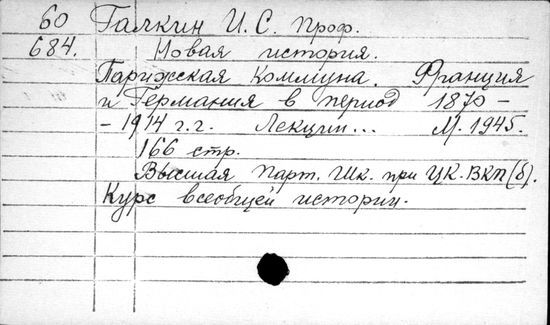 60 Галкин И. С. проф.
684. Новая история.
Парижская Коммуна. Франция
и Германия в период 1870 –
– 1914 г.г. Лекции... М. 1945.
166 стр.
Высшая Парт. Шк. при ЦК. ВКП(б).
Курс всеобщей истории.